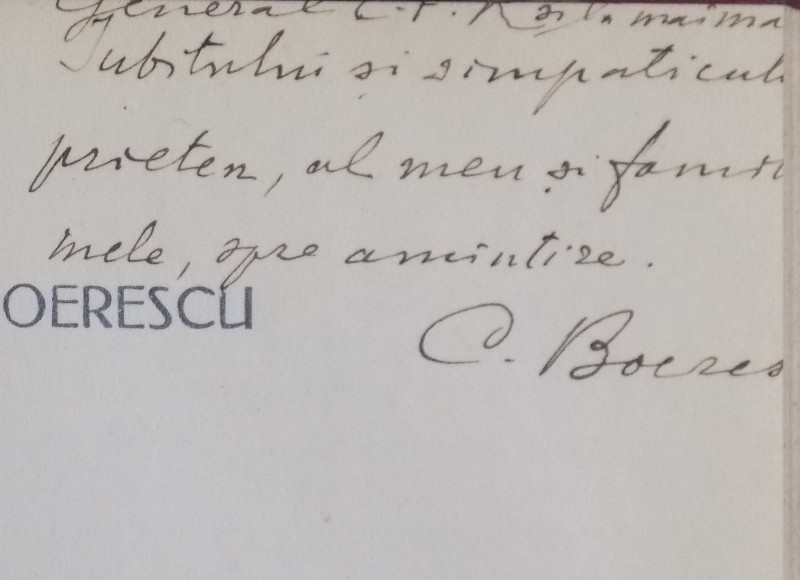 General C. F.
Iubitului și simpaticul
prieten, al meu și famil
mele, spre amintire.
OERESCU
C. Boeres